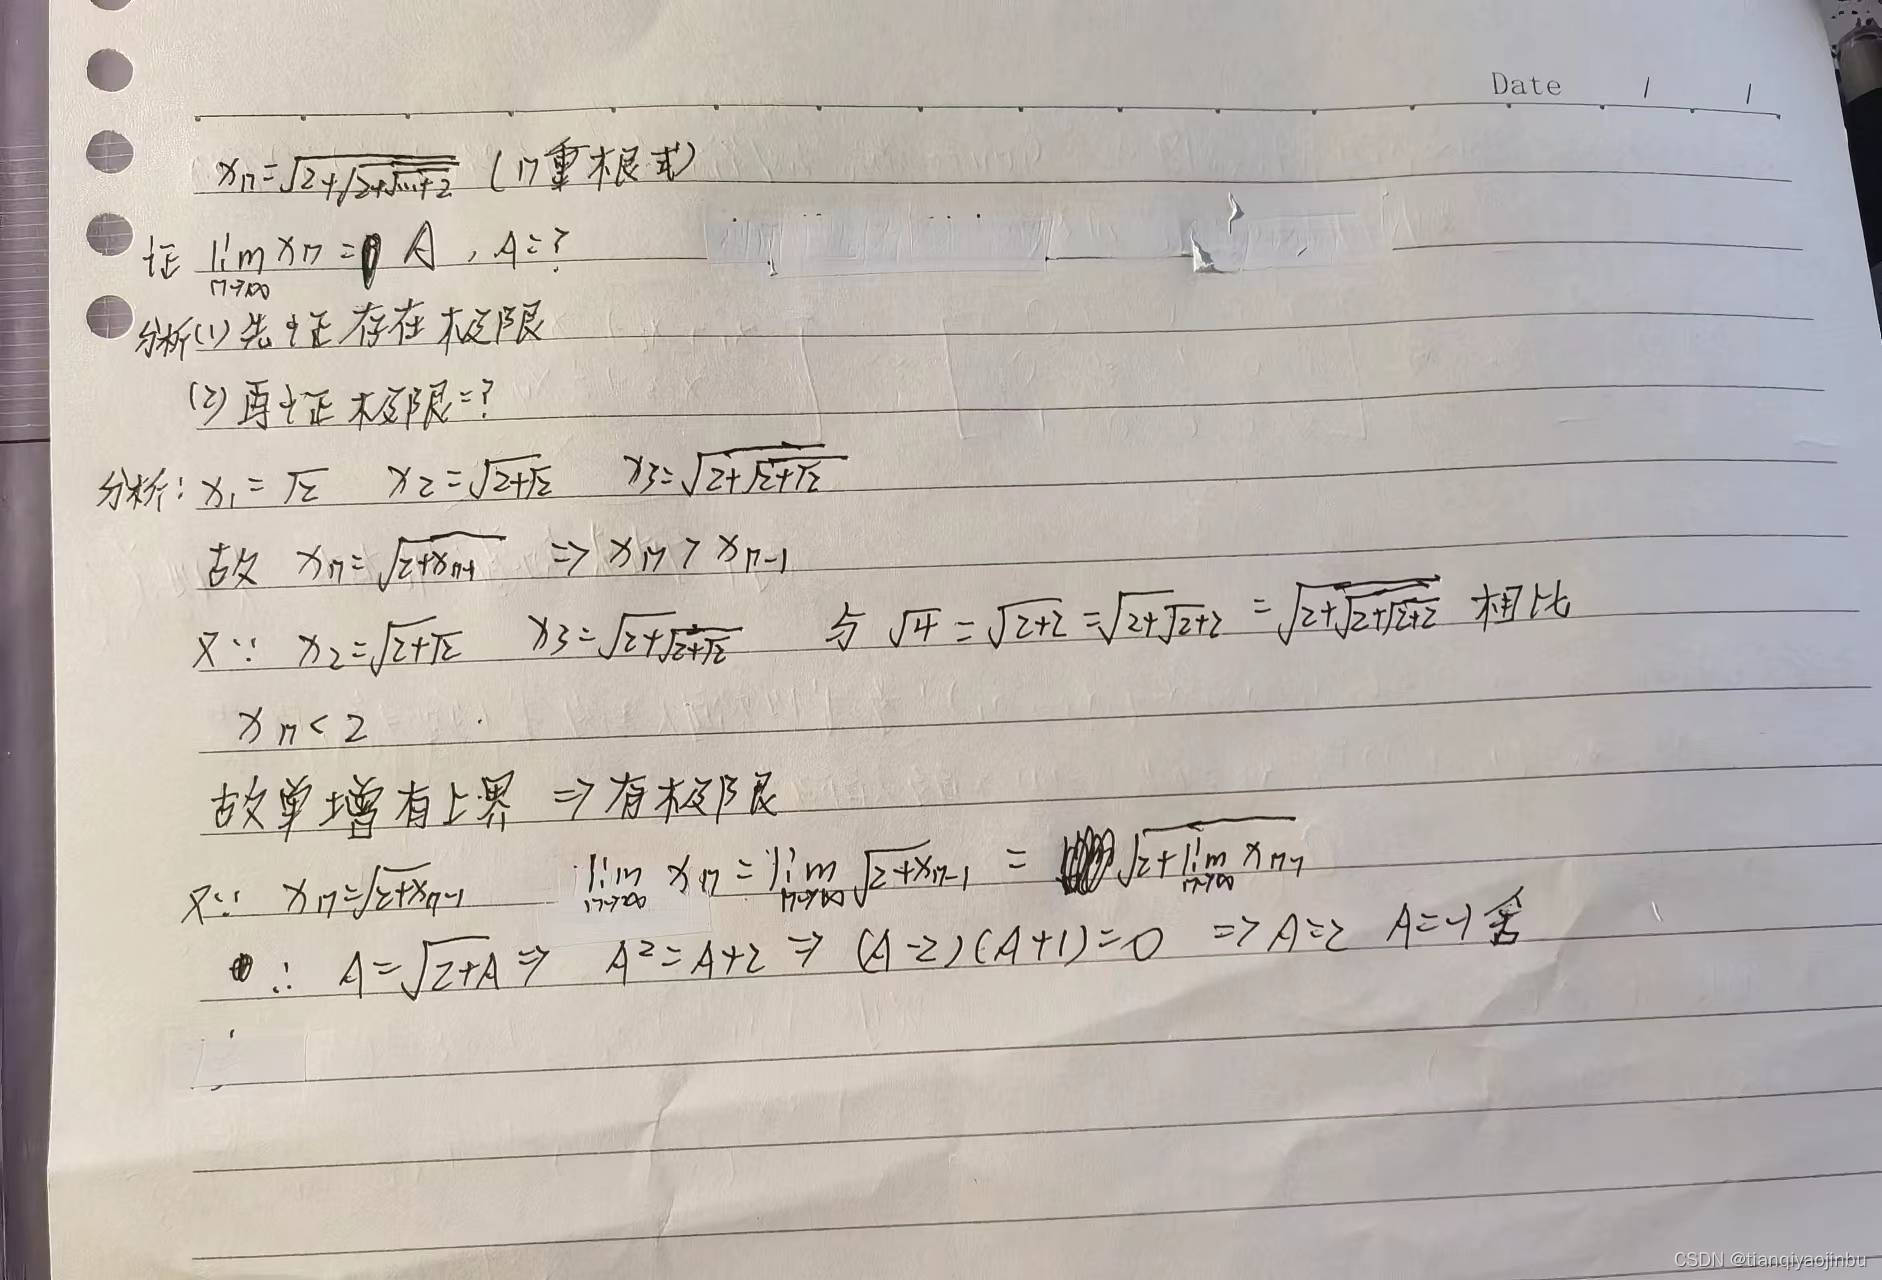 Date / /
xn=√(2+√(2+√(…+2))) (n重根式)
证 lim n→∞ xn = A , A=?
分析(1) 先证存在极限
(2) 再证极限=?
分析: x₁=√2 x₂=√(2+√2) x₃=√(2+√(2+√2))
故 xn=√(2+xn-1) ⇒ xn > xn-1
又∵ x₂=√(2+√2) x₃=√(2+√(2+√2)) 与 √4=√(2+2)=√(2+√(2+2))=√(2+√(2+√(2+2))) 相比
xn<2
故单增有上界 ⇒ 有极限
又∵ xn=√(2+xn-1) lim n→∞ xn = lim n→∞ √(2+xn-1) = √(2+lim n→∞ xn-1)
∴ A=√(2+A) ⇒ A²=A+2 ⇒ (A-2)(A+1)=0 ⇒ A=2 A=-1 舍
CSDN @tianqiyaojinbu